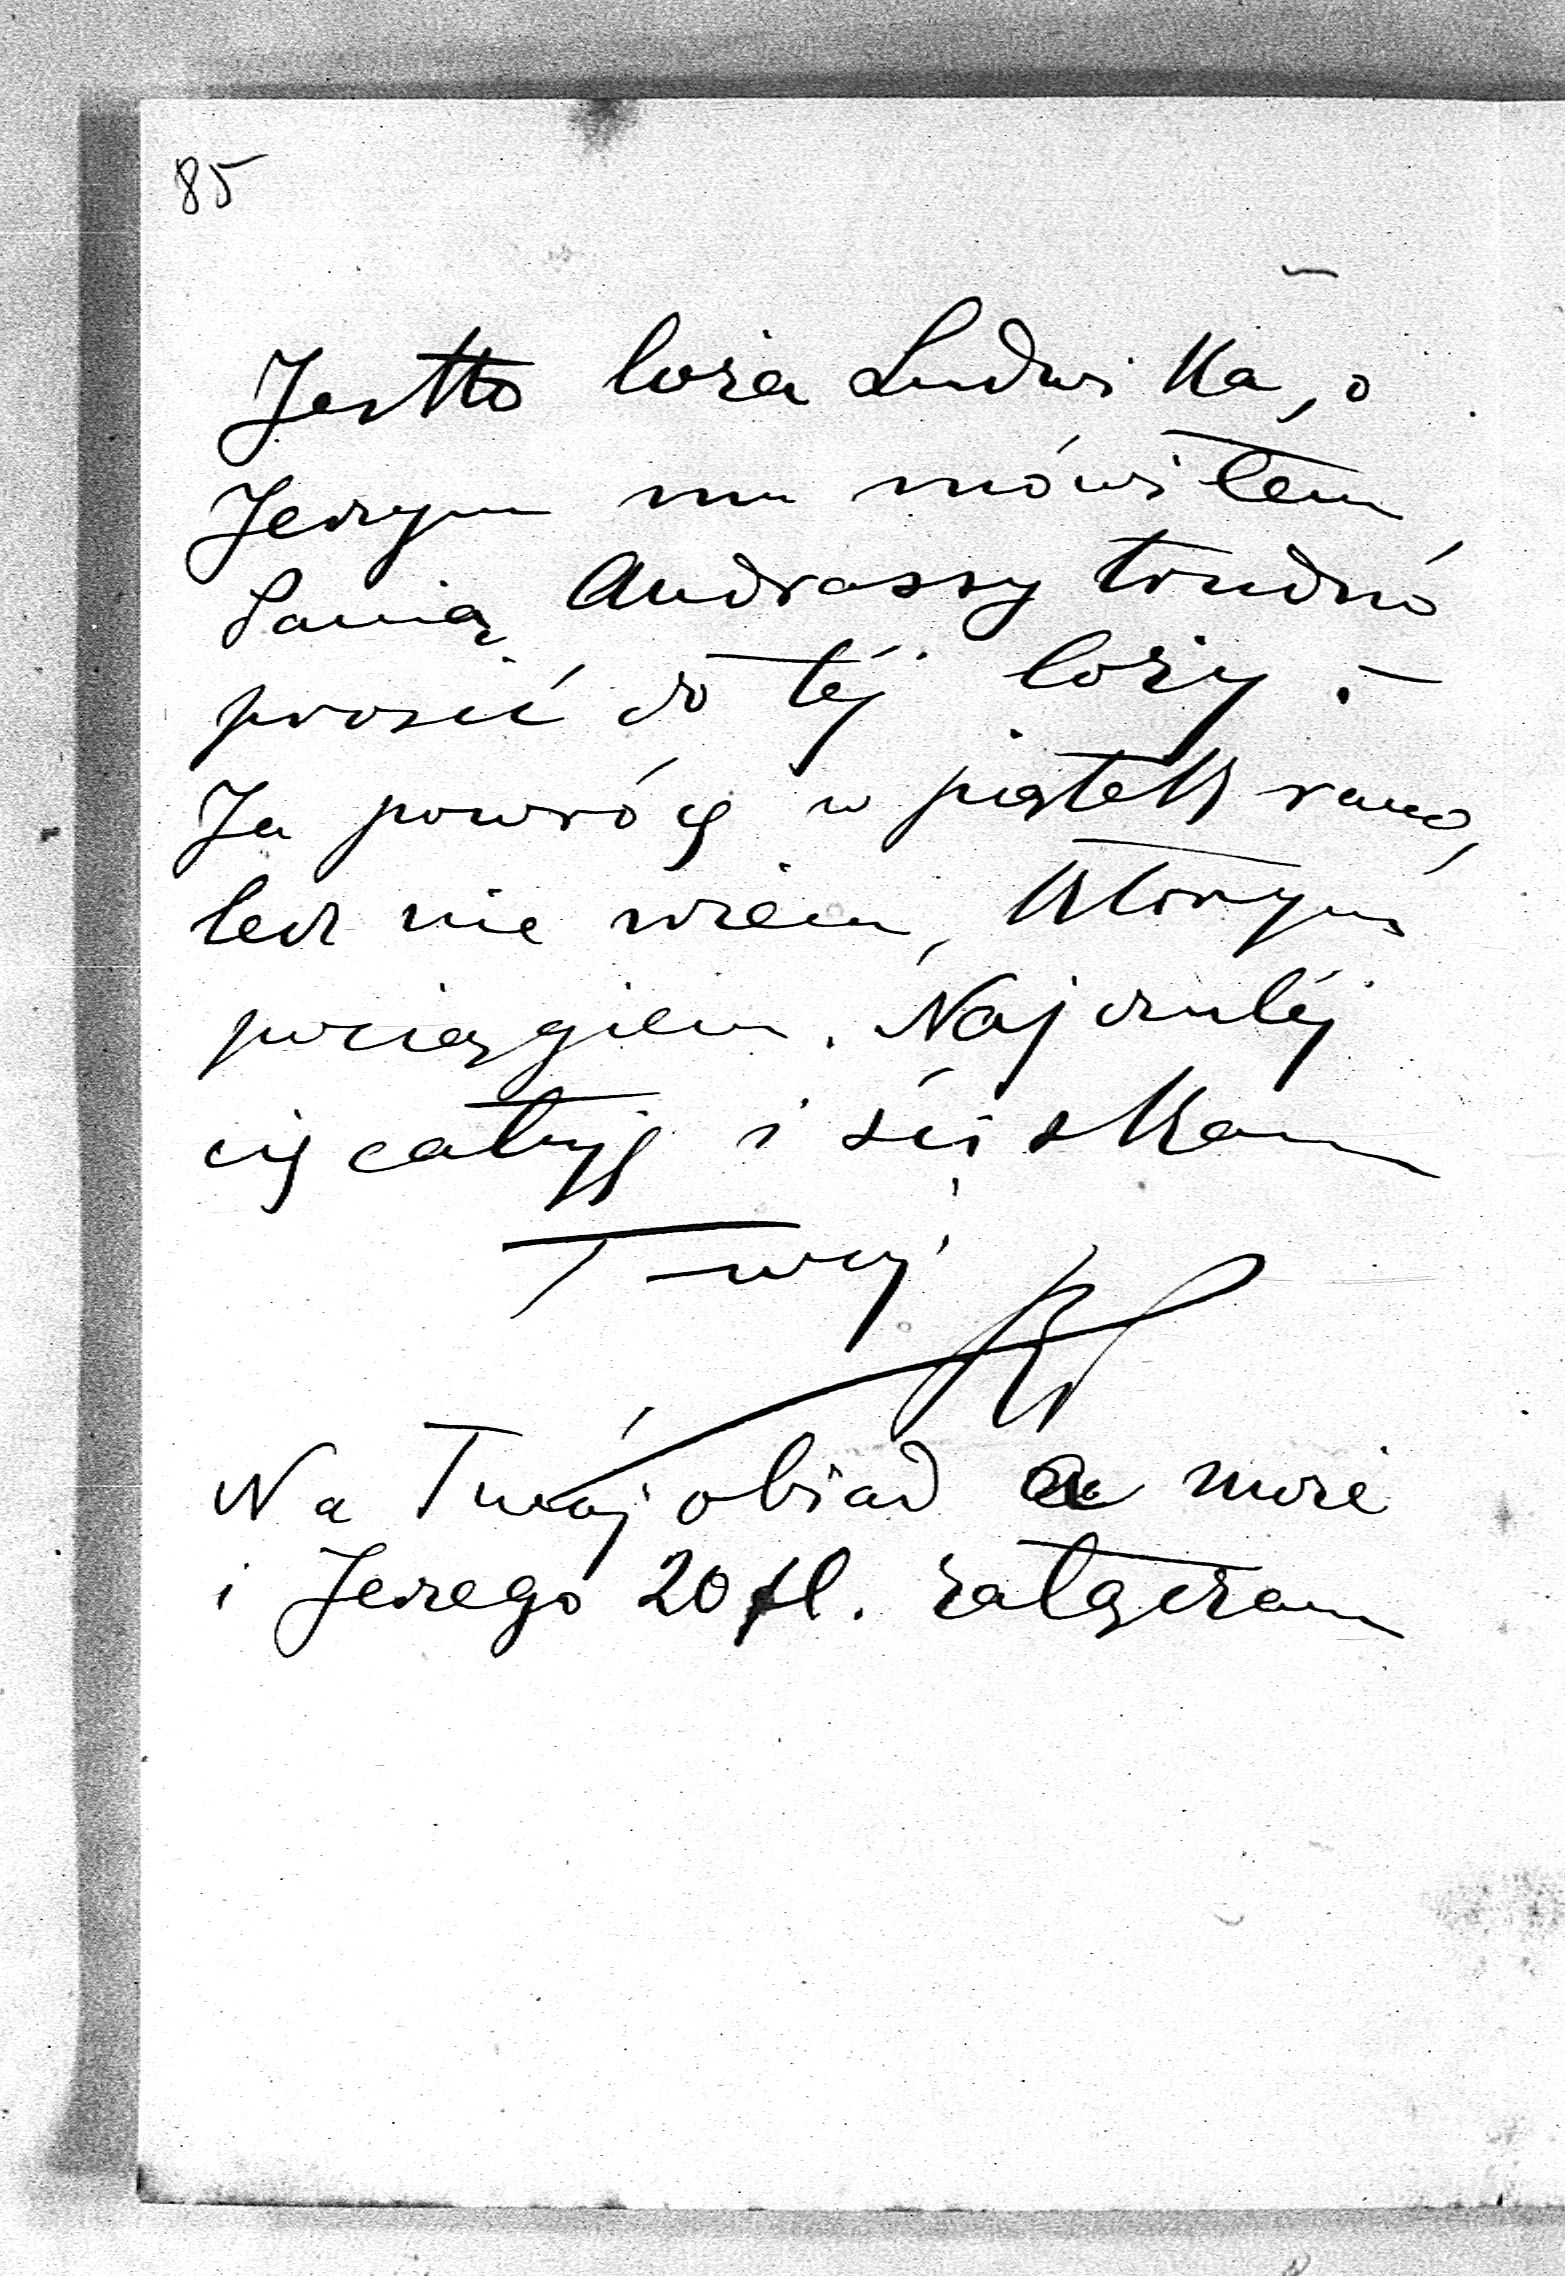 85
Jestto loża Ludwika, o
Jerzym mu mówiłem,
Panią Andrassy trudno
prosić do téj loży. –
Ja powrócę w piątek rano,
lecz nie wiem, którym
pociągiem. Najczuléj
cię całuję i ściskam
Twój
Na Twój obiad a może
i Jerzego 20 fl. załączam